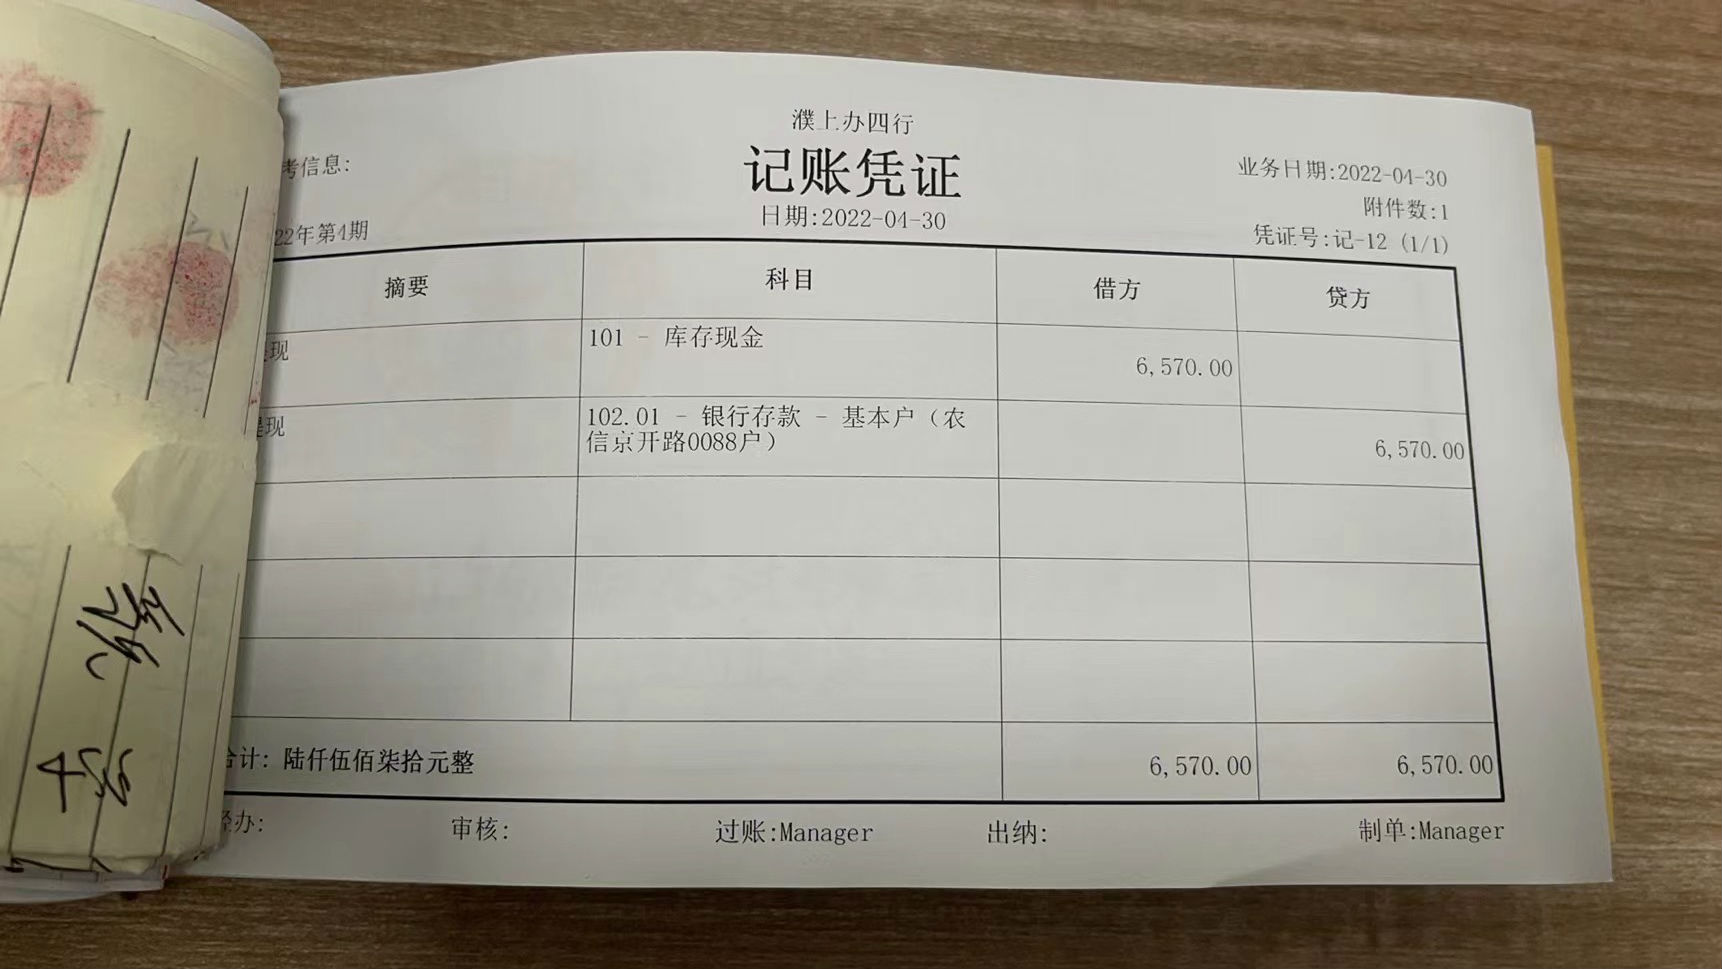 濮上办四行
记账凭证
考信息:
业务日期:2022-04-30
日期:2022-04-30
附件数:1
22年第4期
凭证号:记-12 (1/1)
摘要 科目 借方 贷方
现 101 - 库存现金 6,570.00
提现 102.01 - 银行存款 - 基本户（农
信京开路0088户） 6,570.00
合计: 陆仟伍佰柒拾元整 6,570.00 6,570.00
经办: 审核: 过账:Manager 出纳: 制单:Manager